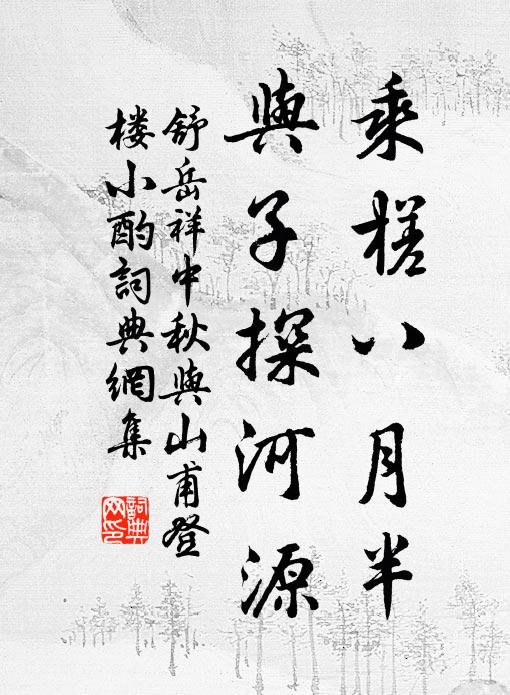 乘槎八月半
與子探河源
舒岳祥中秋與山甫登
楼小酌詞典網集
詞典網印